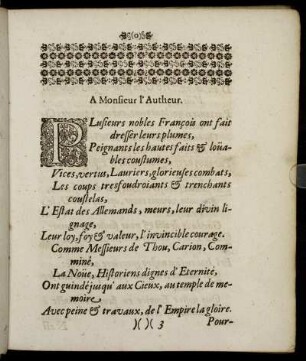 A Monsieur l'Autheur.
PLusieurs nobles François ont fait
dresser leurs plumes,
Peignants les hautes faits & loüa-
bles coustumes,
Vices, vertus, Lauriers, glorieuses combats,
Les coups tres foudroiants & trenchants
coustelas,
L'Estat des Allemands, meurs, leur divin li-
gnage,
Leur loy, foy & valeur, l'invincible courage.
Comme Messieurs de Thou, Carion, Com-
miné,
La Noüe, Historiens dignes d'Eternité,
Ont guindé jusqu' aux Cieux, au temple de me-
moire
Avec peine & travaux, de l'Empire la gloire.
)( )( 3
Pour-